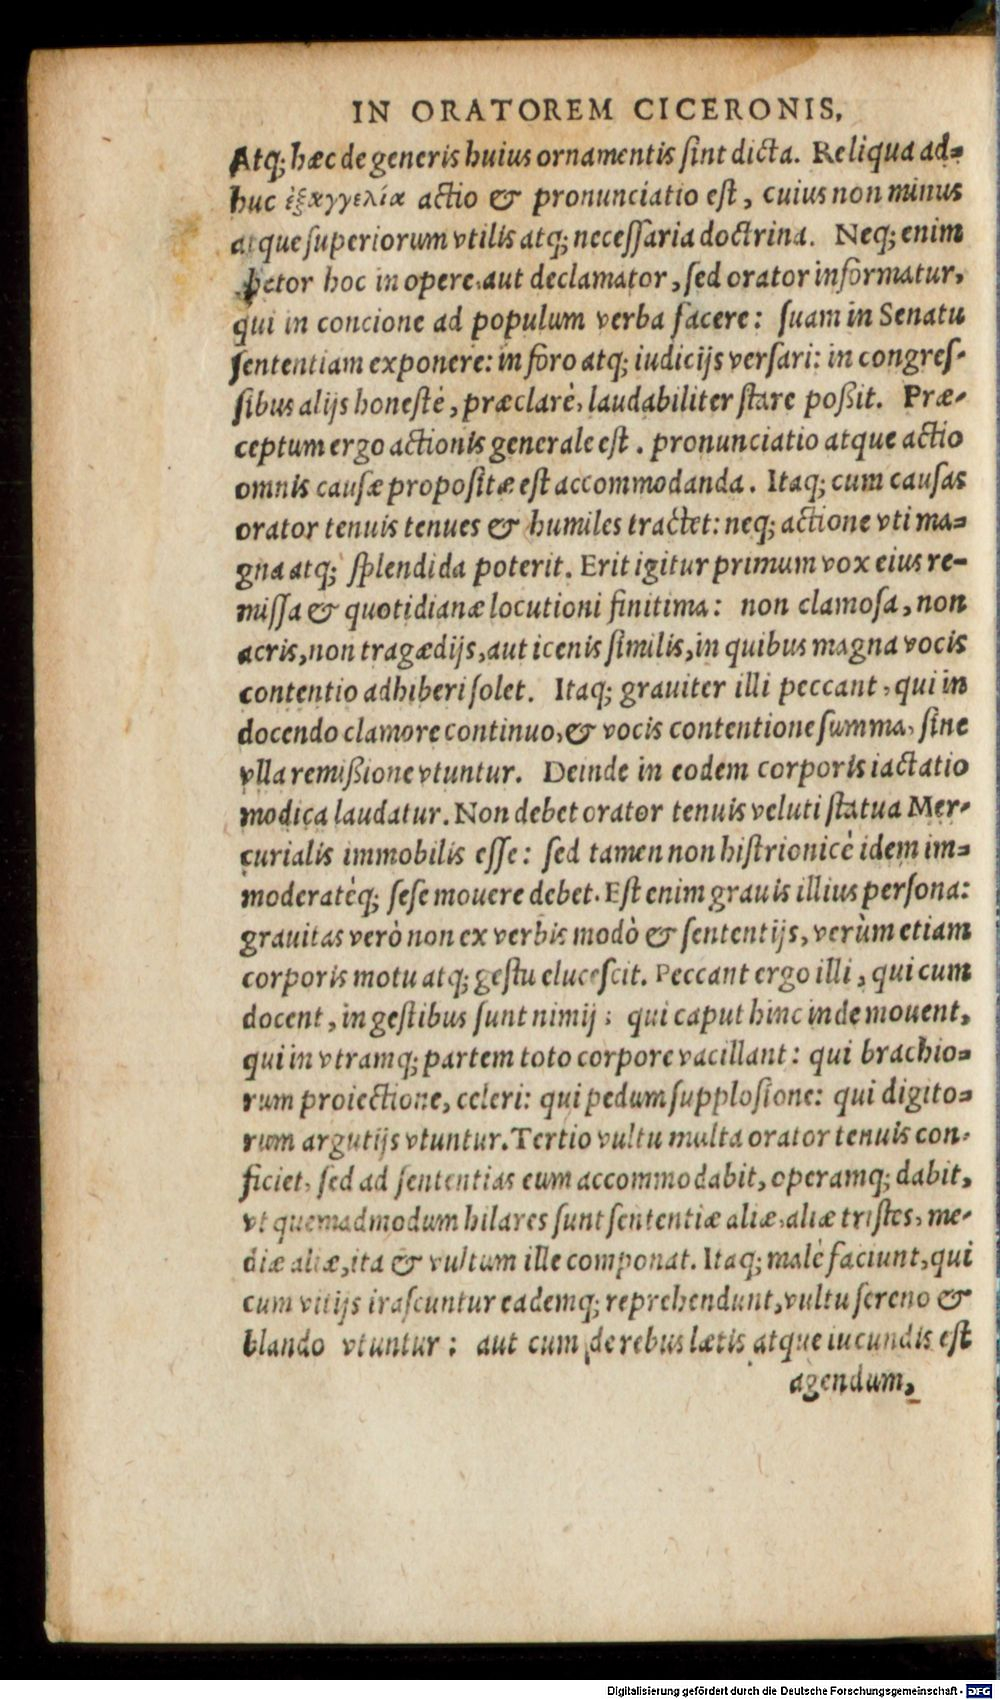 IN ORATOREM CICERONIS,
Atq; hæc de generis huius ornamentis sint dicta. Reliqua ad=
huc ἐξαγγελία actio & pronunciatio est, cuius non minus
atque superiorum vtilis atq; necessaria doctrina. Neq; enim
hetor hoc in opere, aut declamator, sed orator informatur,
qui in concione ad populum verba facere: suam in Senatu
sententiam exponere: in foro atq; iudicijs versari: in congres-
sibus alijs honestè, præclarè, laudabiliter stare poßit. Præ-
ceptum ergo actionis generale est. pronunciatio atque actio
omnis causæ propositæ est accommodanda. Itaq; cum causas
orator tenuis tenues & humiles tractet: neq; actione vti ma=
gna atq; splendida poterit. Erit igitur primum vox eius re-
missa & quotidianæ locutioni finitima: non clamosa, non
acris, non tragædijs, aut icenis similis, in quibus magna vocis
contentio adhiberi solet. Itaq; grauiter illi peccant, qui in
docendo clamore continuo, & vocis contentione summa, sine
vlla remißione vtuntur. Deinde in eodem corporis iactatio
modica laudatur. Non debet orator tenuis veluti statua Mer-
curialis immobilis esse: sed tamen non histrionicè idem im=
moderatèq; sese mouere debet. Est enim grauis illius persona:
grauitas verò non ex verbis modò & sententijs, verùm etiam
corporis motu atq; gestu elucescit. Peccant ergo illi, qui cum
docent, in gestibus sunt nimij: qui caput hinc inde mouent,
qui in vtramq; partem toto corpore vacillant: qui brachio=
rum proiectione, celeri: qui pedum supplosione: qui digito=
rum argutijs vtuntur. Tertio vultu multa orator tenuis con-
ficiet, sed ad sententias eum accommodabit, operamq; dabit,
vt quemadmodum hilares sunt sententiæ aliæ, aliæ tristes, me-
diæ aliæ, ita & vultum ille componat. Itaq; malè faciunt, qui
cum vitijs irascuntur eademq; reprehendunt, vultu sereno &
blando vtuntur: aut cum de rebus lætis atque iucundis est
agendum,
Digitalisierung gefördert durch die Deutsche Forschungsgemeinschaft - DFG